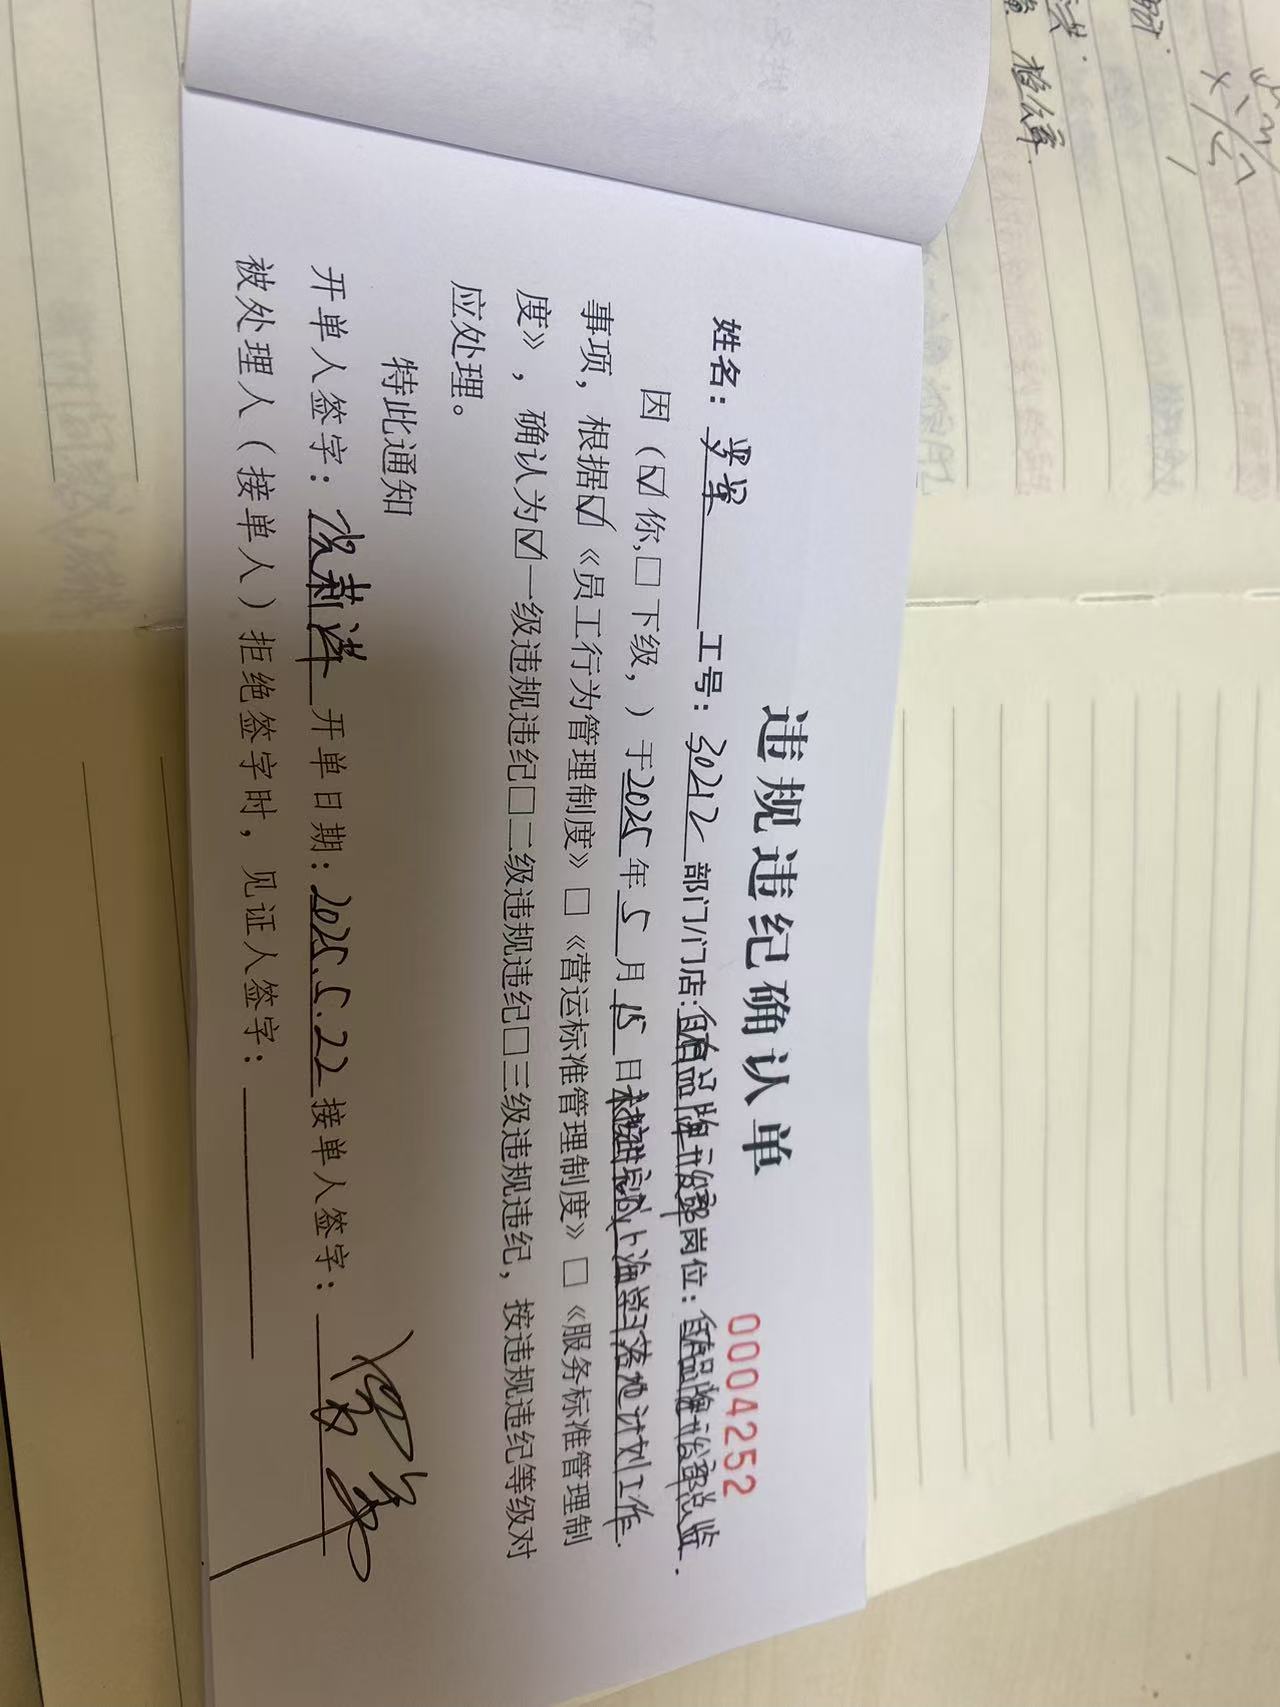 违规违纪确认单
0004252
姓名： 工号：30212 部门/门店：自有品牌开发部 岗位：自有品牌开发部总监.
因（☑你,□下级，）于2025年5月15日未按时完成上海学习落地计划工作.
事项，根据☑《员工行为管理制度》□《营运标准管理制度》□《服务标准管理制
度》，确认为☑一级违规违纪□二级违规违纪□三级违规违纪，按违规违纪等级对
应处理。
特此通知
开单人签字： 开单日期：2025.5.22 接单人签字：
被处理人（接单人）拒绝签字时，见证人签字：